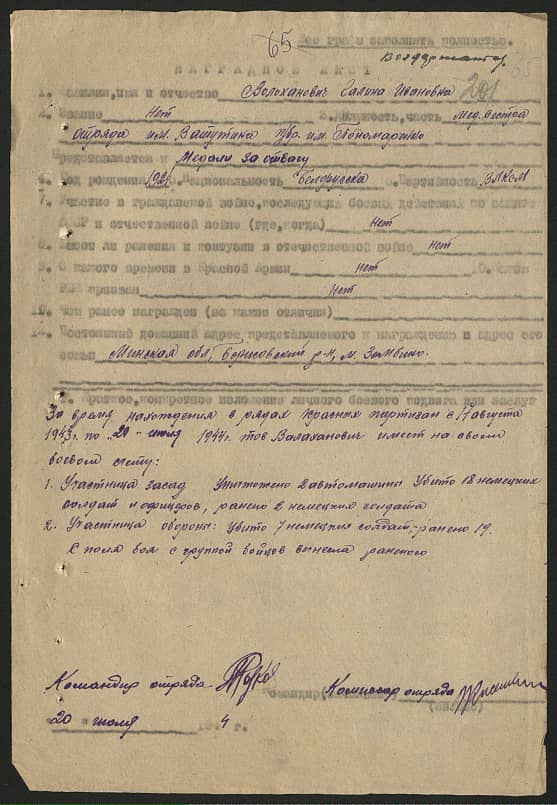 65 Все графы заполнять полностью.
НАГРАДНОЙ ЛИСТ
1. Фамилия, имя и отчество Волоханович Галина Ивановна
2. Звание Нет 3. Должность, часть Мед.сестра
отряда им. Ватутина п/бр. им. Пономаренко
Представляется к Медали За отвагу
Год рождения 5. Национальность Белоруска 6. Партийность ВЛКСМ
7. Участие в гражданской войне, последующих боевых действиях по защите
СССР и отечественной войне (где, когда) Нет
8. Имеет ли ранения и контузии в отечественной войне нет
9. С какого времени в Красной Армии нет
РВК призван Нет
10. Чем ранее награжден (за какие отличия)
Постоянный домашний адрес представляемого к награждению и адрес его
семьи Минская обл, Борисовский р-н, м. Зембино.
1. Краткое, конкретное изложение личного боевого подвига или заслуг
За время нахождения в рядах Красных партизан с 17 августа
1943г. по "20" июля 1944г. тов Валаханович имеет на своем
боевом счету:
1. Участница засад Уничтожено 2 автомашины Убито 18 немецких
солдат и офицеров, ранено 2 немецких солдата
2. Участница обороны: убито 7 немецких солдат, ранено 19.
С поля боя с группой бойцов вынесла раненого
Командир отряда Комиссар отряда
Командир
20 июля 194 4 г.